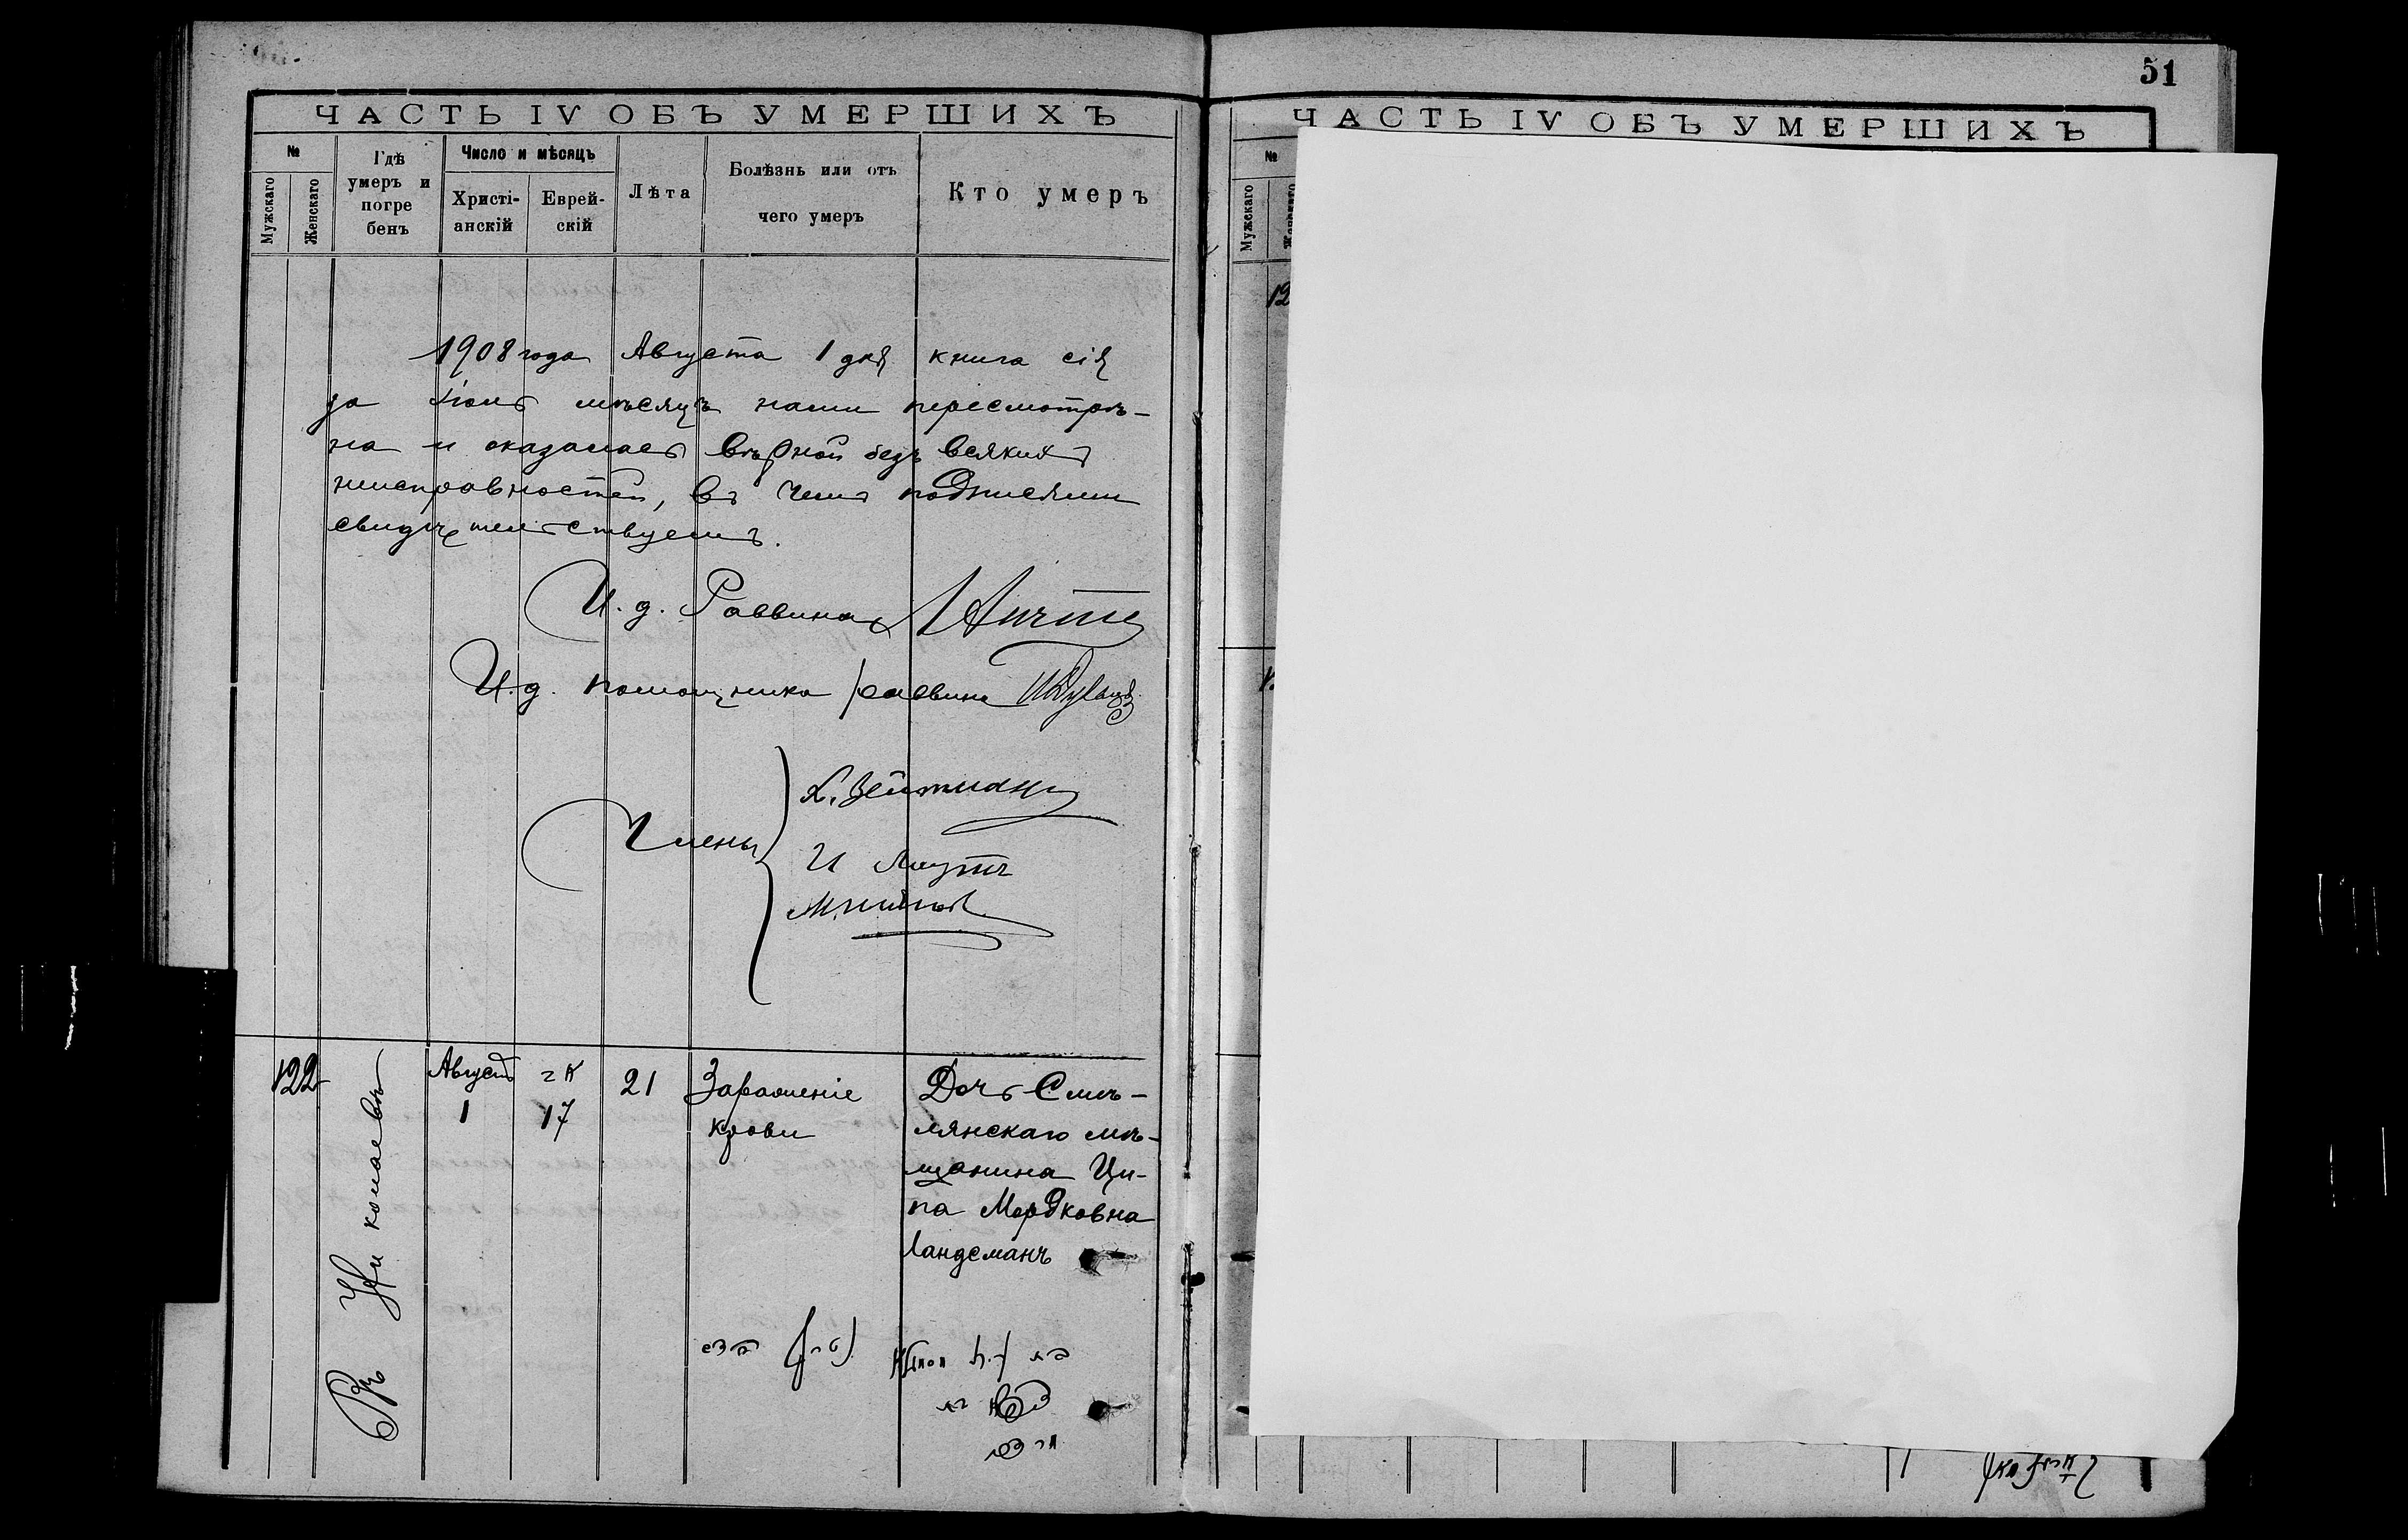 51
ЧАСТЬ IV ОБЪ УМЕРШИХЪ
№
Мужскаго
Женскаго
Гдѣ
умеръ и
погре
бенъ
Число и мѣсяцъ
Христі-
анскій
Еврей-
скій
Лѣта
Болѣзнь или отъ
чего умеръ
Кто умеръ
1908 года Августа 1 дня книга сія
за Іюль мѣсяцъ нами пересмотрѣ-
на и оказалась вѣрной безъ всякихъ
неисправностей, въ чемъ подписями
свидѣтельствуемъ.
И. д. Раввина
И. д. помощника раввина
Члены
122
Августъ
1
17
21
Зараженіе
крови
Дочь Смѣ-
лянскаго мѣ-
щанина Ци-
па Мордковна
Ландсманъ
ЧАСТЬ IV ОБЪ УМЕРШИХЪ
№
Мужскаго
12